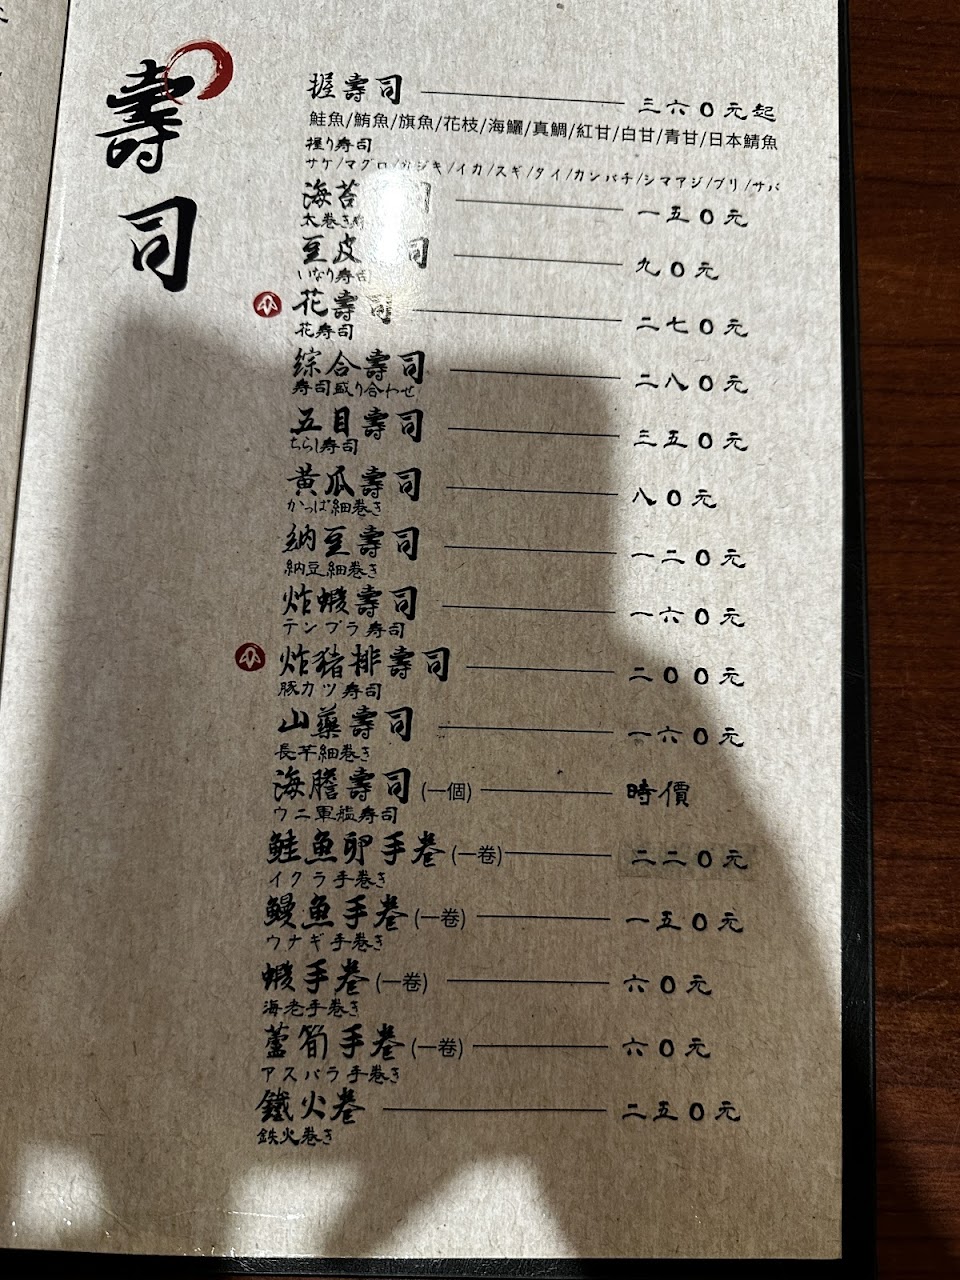 壽司
握壽司 三六0元起
鮭魚/鮪魚/旗魚/花枝/海鱺/真鯛/紅甘/白甘/青甘/日本鯖魚
握り寿司
サケ/マグロ/カジキ/イカ/スギ/タイ/カンパチ/シマアジ/ブリ/サバ
海苔 司 一五0元
太巻き
豆皮 司 九0元
いなり寿司
花壽司 二七0元
花寿司
綜合壽司 二八0元
寿司盛り合わせ
五目壽司 三五0元
ちらし寿司
黃瓜壽司 八0元
かっぱ細巻き
納豆壽司 一二0元
納豆細巻き
炸蝦壽司 一六0元
テンプラ寿司
炸豬排壽司 二00元
豚カツ寿司
山藥壽司 一六0元
長芋細巻き
海膽壽司(一個) 時價
ウニ軍艦寿司
鮭魚卵手卷(一卷) 二二0元
イクラ手巻き
鰻魚手卷(一卷) 一五0元
ウナギ手巻き
蝦手卷(一卷) 六0元
海老手巻き
蘆筍手卷(一卷) 六0元
アスパラ手巻き
鐵火卷 二五0元
鉄火巻き